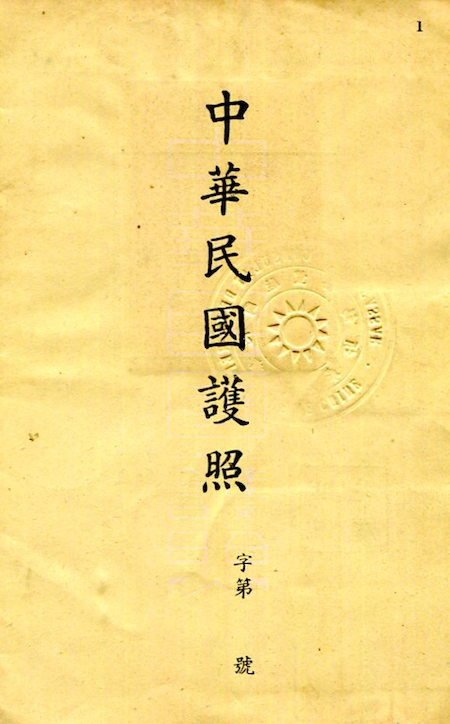 1
中華民國護照
字第 號